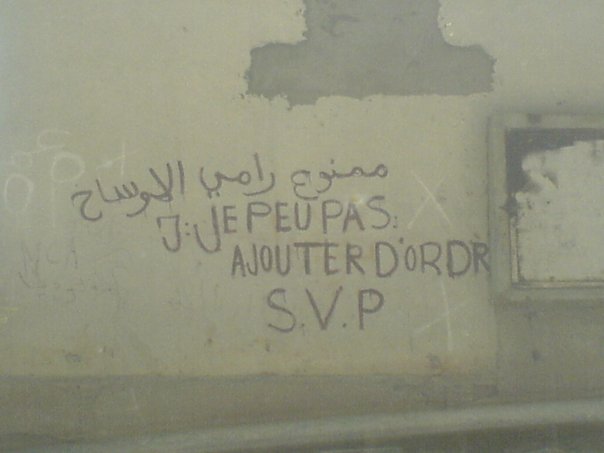 ممنوع رامي الاوساخ
J: JE PEU PAS:
AJOUTER D'ORDR
S.V.P